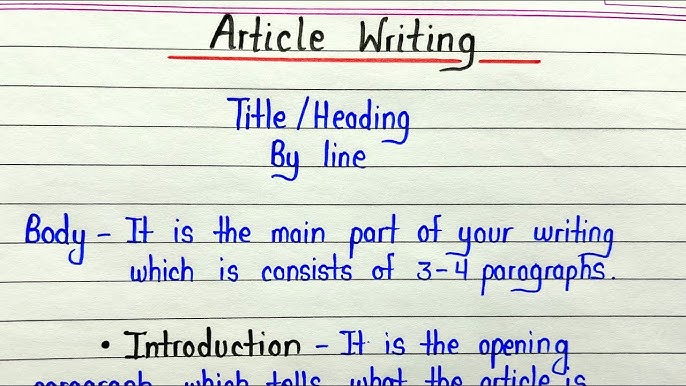 Article Writing
Title/Heading
By line
Body - It is the main part of your writing
which is consists of 3-4 paragraphs.
• Introduction - It is the opening
paragraph which tells what the article is